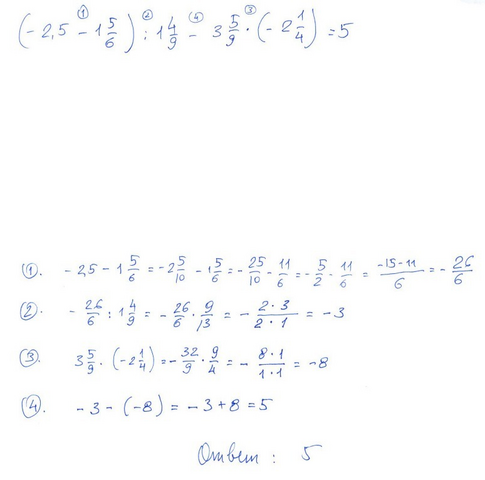 (-2,5 - 1 5/6) : 1 4/9 - 3 5/9 · (-2 1/4) = 5
① ② ④ ③
①. -2,5 - 1 5/6 = -2 5/10 - 1 5/6 = -25/10 - 11/6 = -5/2 - 11/6 = (-15-11)/6 = -26/6
②. -26/6 : 1 4/9 = -26/6 · 9/13 = -(2·3)/(2·1) = -3
③. 3 5/9 · (-2 1/4) = -32/9 · 9/4 = -(8·1)/(1·1) = -8
④. -3 - (-8) = -3 + 8 = 5
Ответ: 5